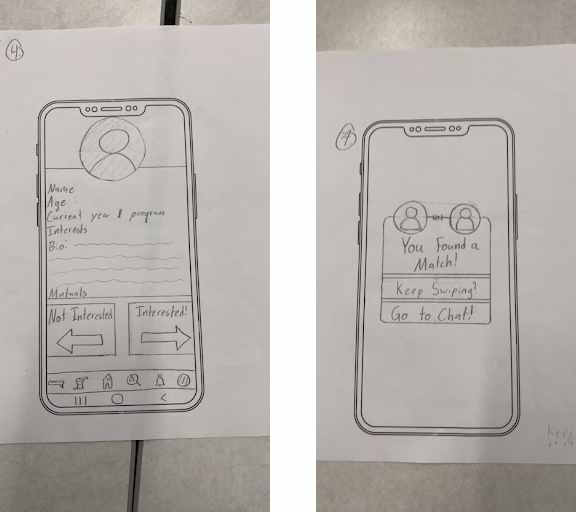 4.
Name
Age
Current year & program
Interests
Bio:
Mutuals
Not Interested
Interested!
7
You Found a
Match!
Keep Swiping?
Go to Chat!